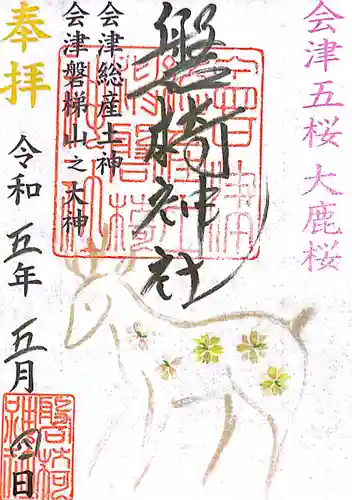 会津五桜 大鹿桜
盤椅神社
会津総産土神
会津磐梯山之大神
奉拝
令和五年五月四日